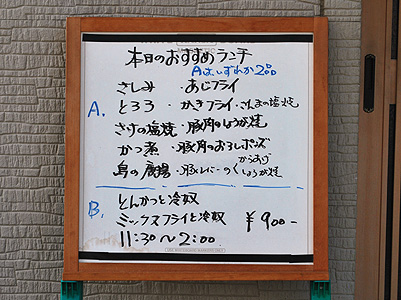 本日のおすすめランチ
Aはいずれか2品
A.
さしみ ・あじフライ
とろろ ・かきフライ・さんまの塩焼
さけの塩焼・豚肉のしょうが焼
かつ煮 ・豚肉のおろしポンズ
からあげ
・豚レバーのしょうが焼
B.
とんかつと冷奴
ミックスフライと冷奴 ¥900-
11:30〜2:00